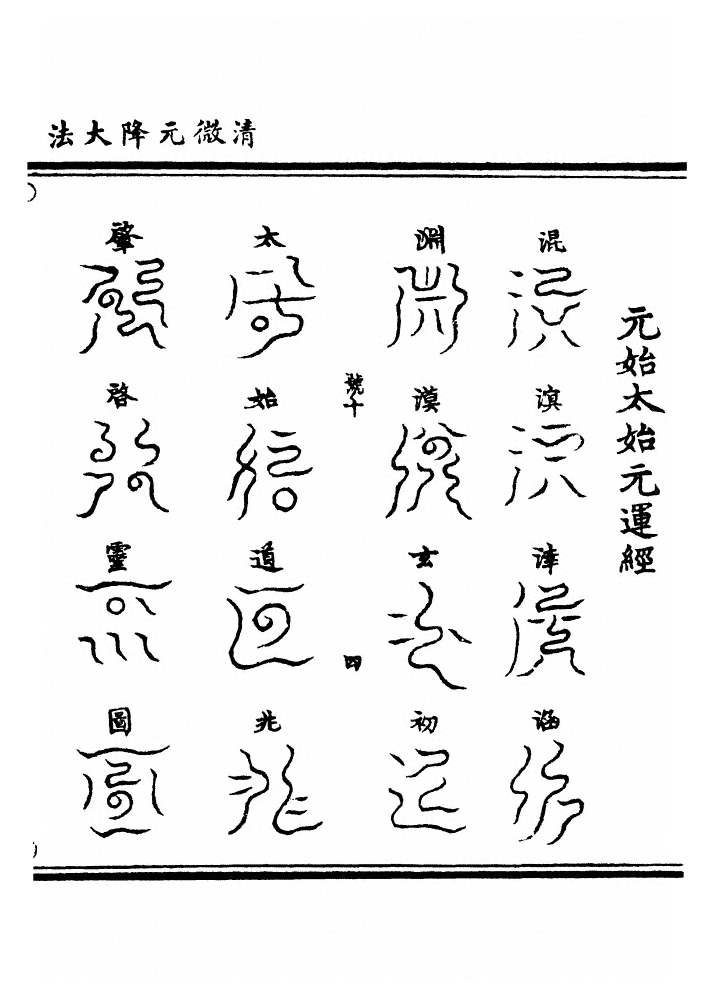 清微元降大法
元始太始元運經
混溟涬涵
淵漠玄初
號十 四
太始道兆
肇啓靈圖